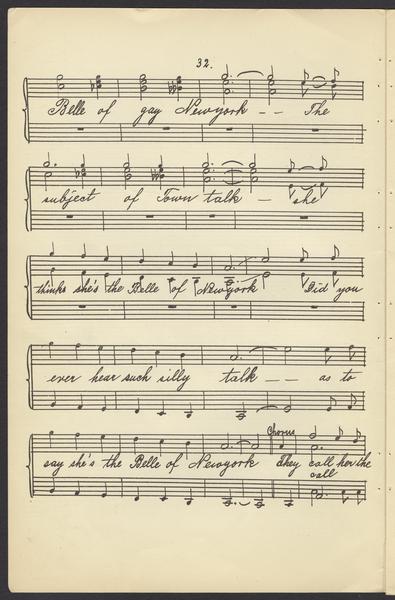 32.
Belle of gay Newyork -- The
subject of Town talk - she
thinks she's the Belle of Newyork Did you
ever hear such silly talk -- as to
Chorus
say she's the Belle of Newyork They call her the
call